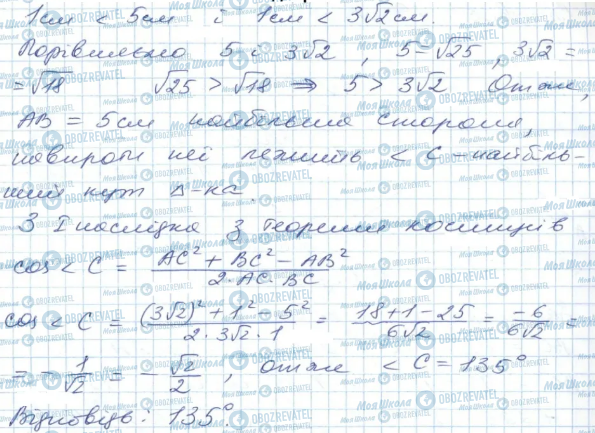 1см < 5см і 1см < 3√2см.
Порівняємо 5 і 3√2, 5 = √25, 3√2 =
= √18 √25 > √18 ⇒ 5 > 3√2 Отже,
AB = 5см найбільша сторона,
навпроти неї лежить < C - найбіль-
ший кут △-ка.
З І наслідка з теореми косинусів
cos < C = (AC² + BC² - AB²) / (2·AC·BC)
cos < C = ((3√2)² + 1² - 5²) / (2·3√2·1) = (18+1-25) / (6√2) = -6 / (6√2) =
= - 1/√2 = - √2/2, отже < C = 135°
Відповідь: 135°.